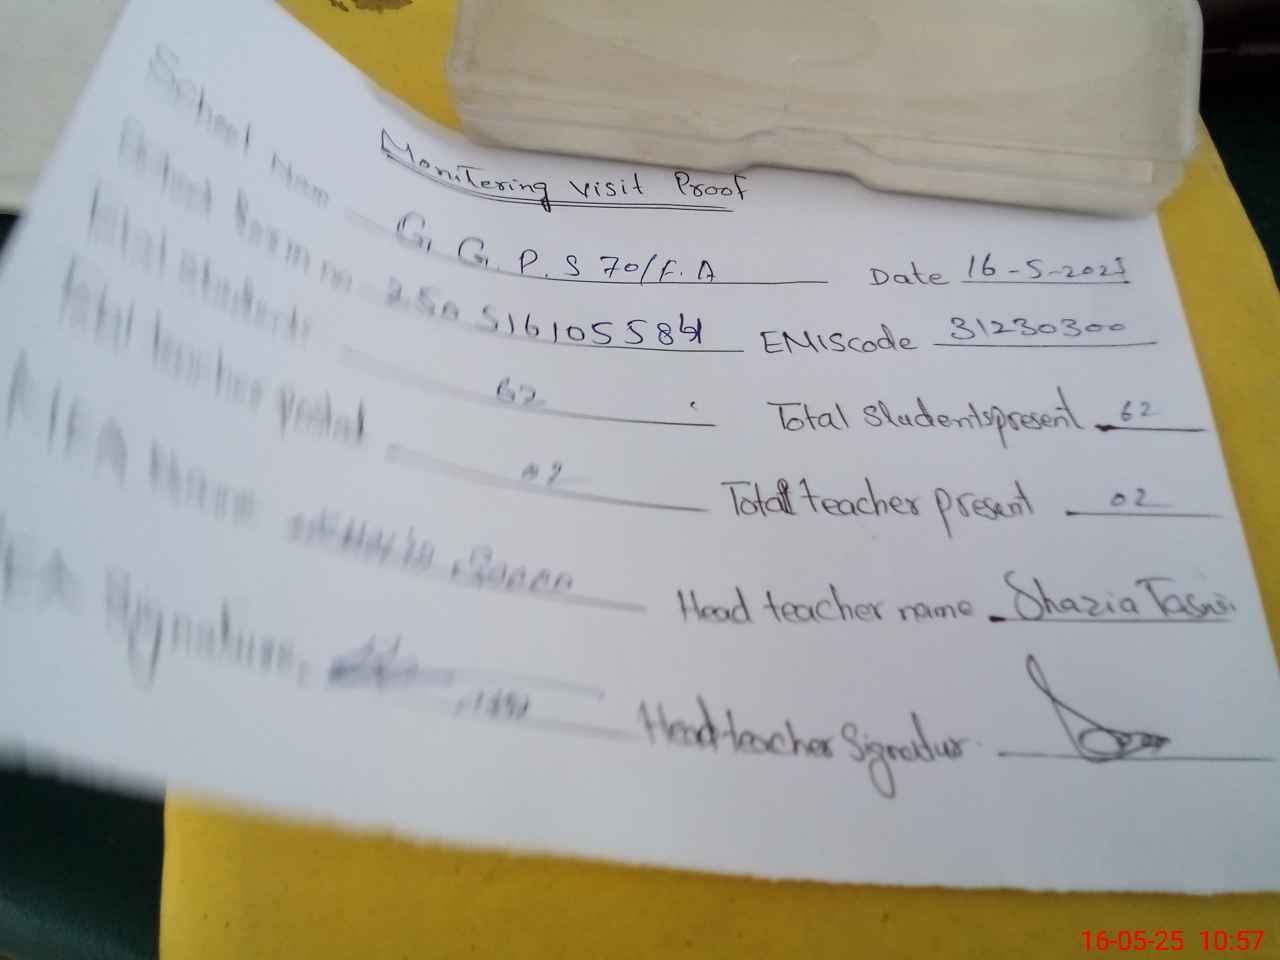 Monitering visit Proof
School Nam G. G. P. S 70/F.A Date 16-5-2025
School Form no EMIScode 31230300
Total students 62 Total Students present 62
Total teacher posted 02 Total teacher present 02
Name Head teacher name Shazia
Signature Head teacher Signatur
16-05-25 10:57